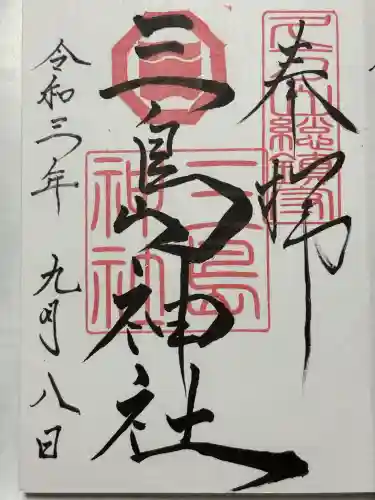 奉拝
三島神社
令和三年 九月八日
三島神社